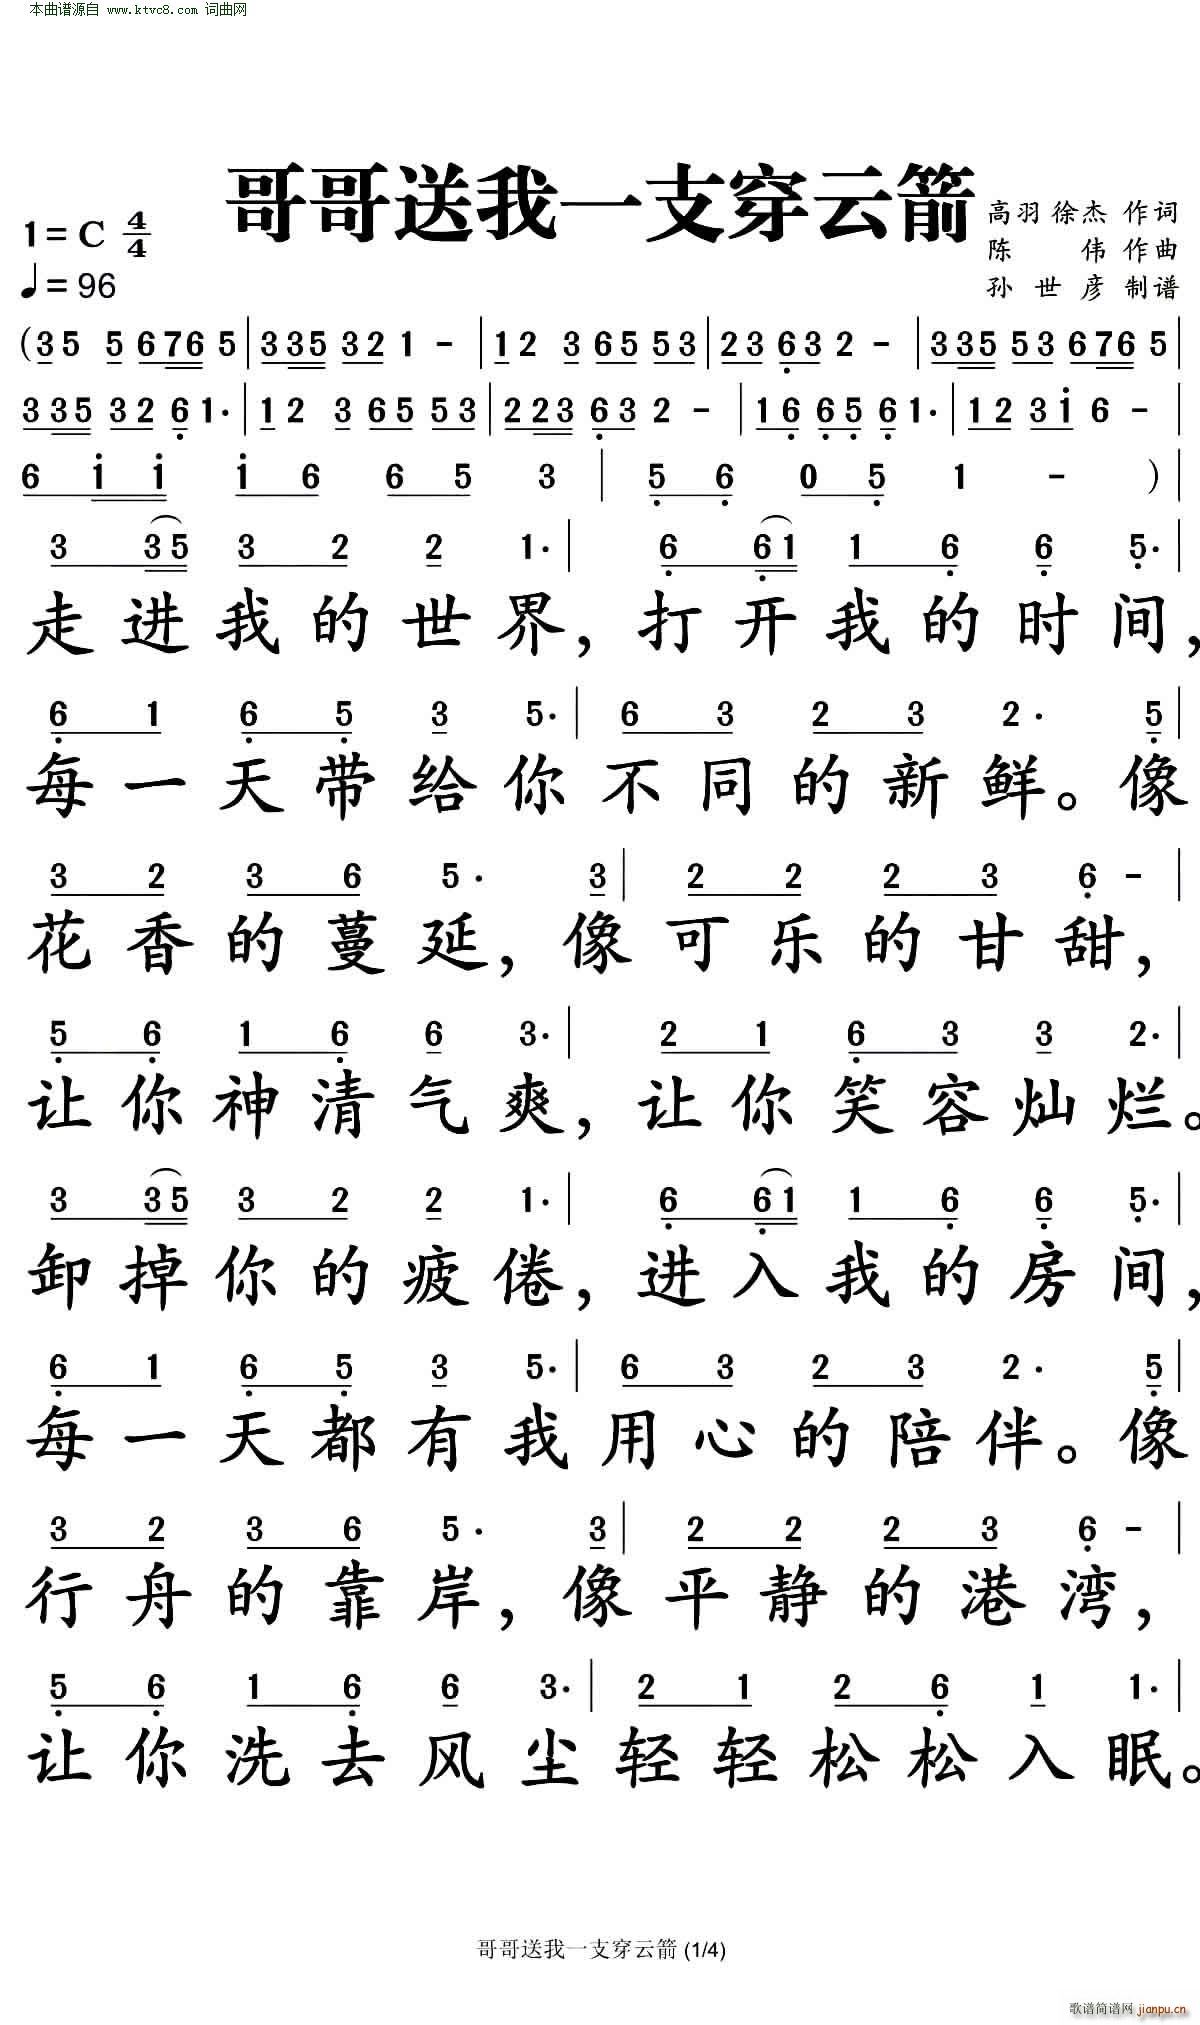 本曲谱源自 www.ktvc8.com 词曲网
哥哥送我一支穿云箭
高羽 徐杰 作词
1=C 4/4
陈 伟 作曲
♩=96
孙世彦 制谱
(35 5 6765|335 321-|12 3 65 53|23 6̣3 2-|335 53 676 5|
335 32 6̣ 1·|12 3 65 53|223 6̣3 2-|16̣ 6̣5̣ 6̣ 1·|12 3i 6-|
6 i i i 6 6 5 3|5̣ 6̣ 0 5̣ 1 -)|
3 35 3 2 2 1·|6̣ 6̣1 1 6̣ 6̣ 5̣·|
走进我的世界，打开我的时间，
6̣ 1 6̣ 5̣ 3 5·|6 3 2 3 2· 5̣|
每一天带给你不同的新鲜。像
3 2 3 6 5· 3|2 2 2 3 6̣ -|
花香的蔓延，像可乐的甘甜，
5̣ 6̣ 1 6̣ 6 3·|2 1 6̣ 3 3 2·|
让你神清气爽，让你笑容灿烂。
3 35 3 2 2 1·|6̣ 6̣1 1 6̣ 6̣ 5̣·|
卸掉你的疲倦，进入我的房间，
6̣ 1 6̣ 5̣ 3 5·|6 3 2 3 2· 5̣|
每一天都有我用心的陪伴。像
3 2 3 6 5· 3|2 2 2 3 6̣ -|
行舟的靠岸，像平静的港湾，
5̣ 6̣ 1 6̣ 6 3·|2 1 2 6̣ 1 1·|
让你洗去风尘轻轻松松入眠。
哥哥送我一支穿云箭 (1/4)
歌谱简谱网 jianpu.cn